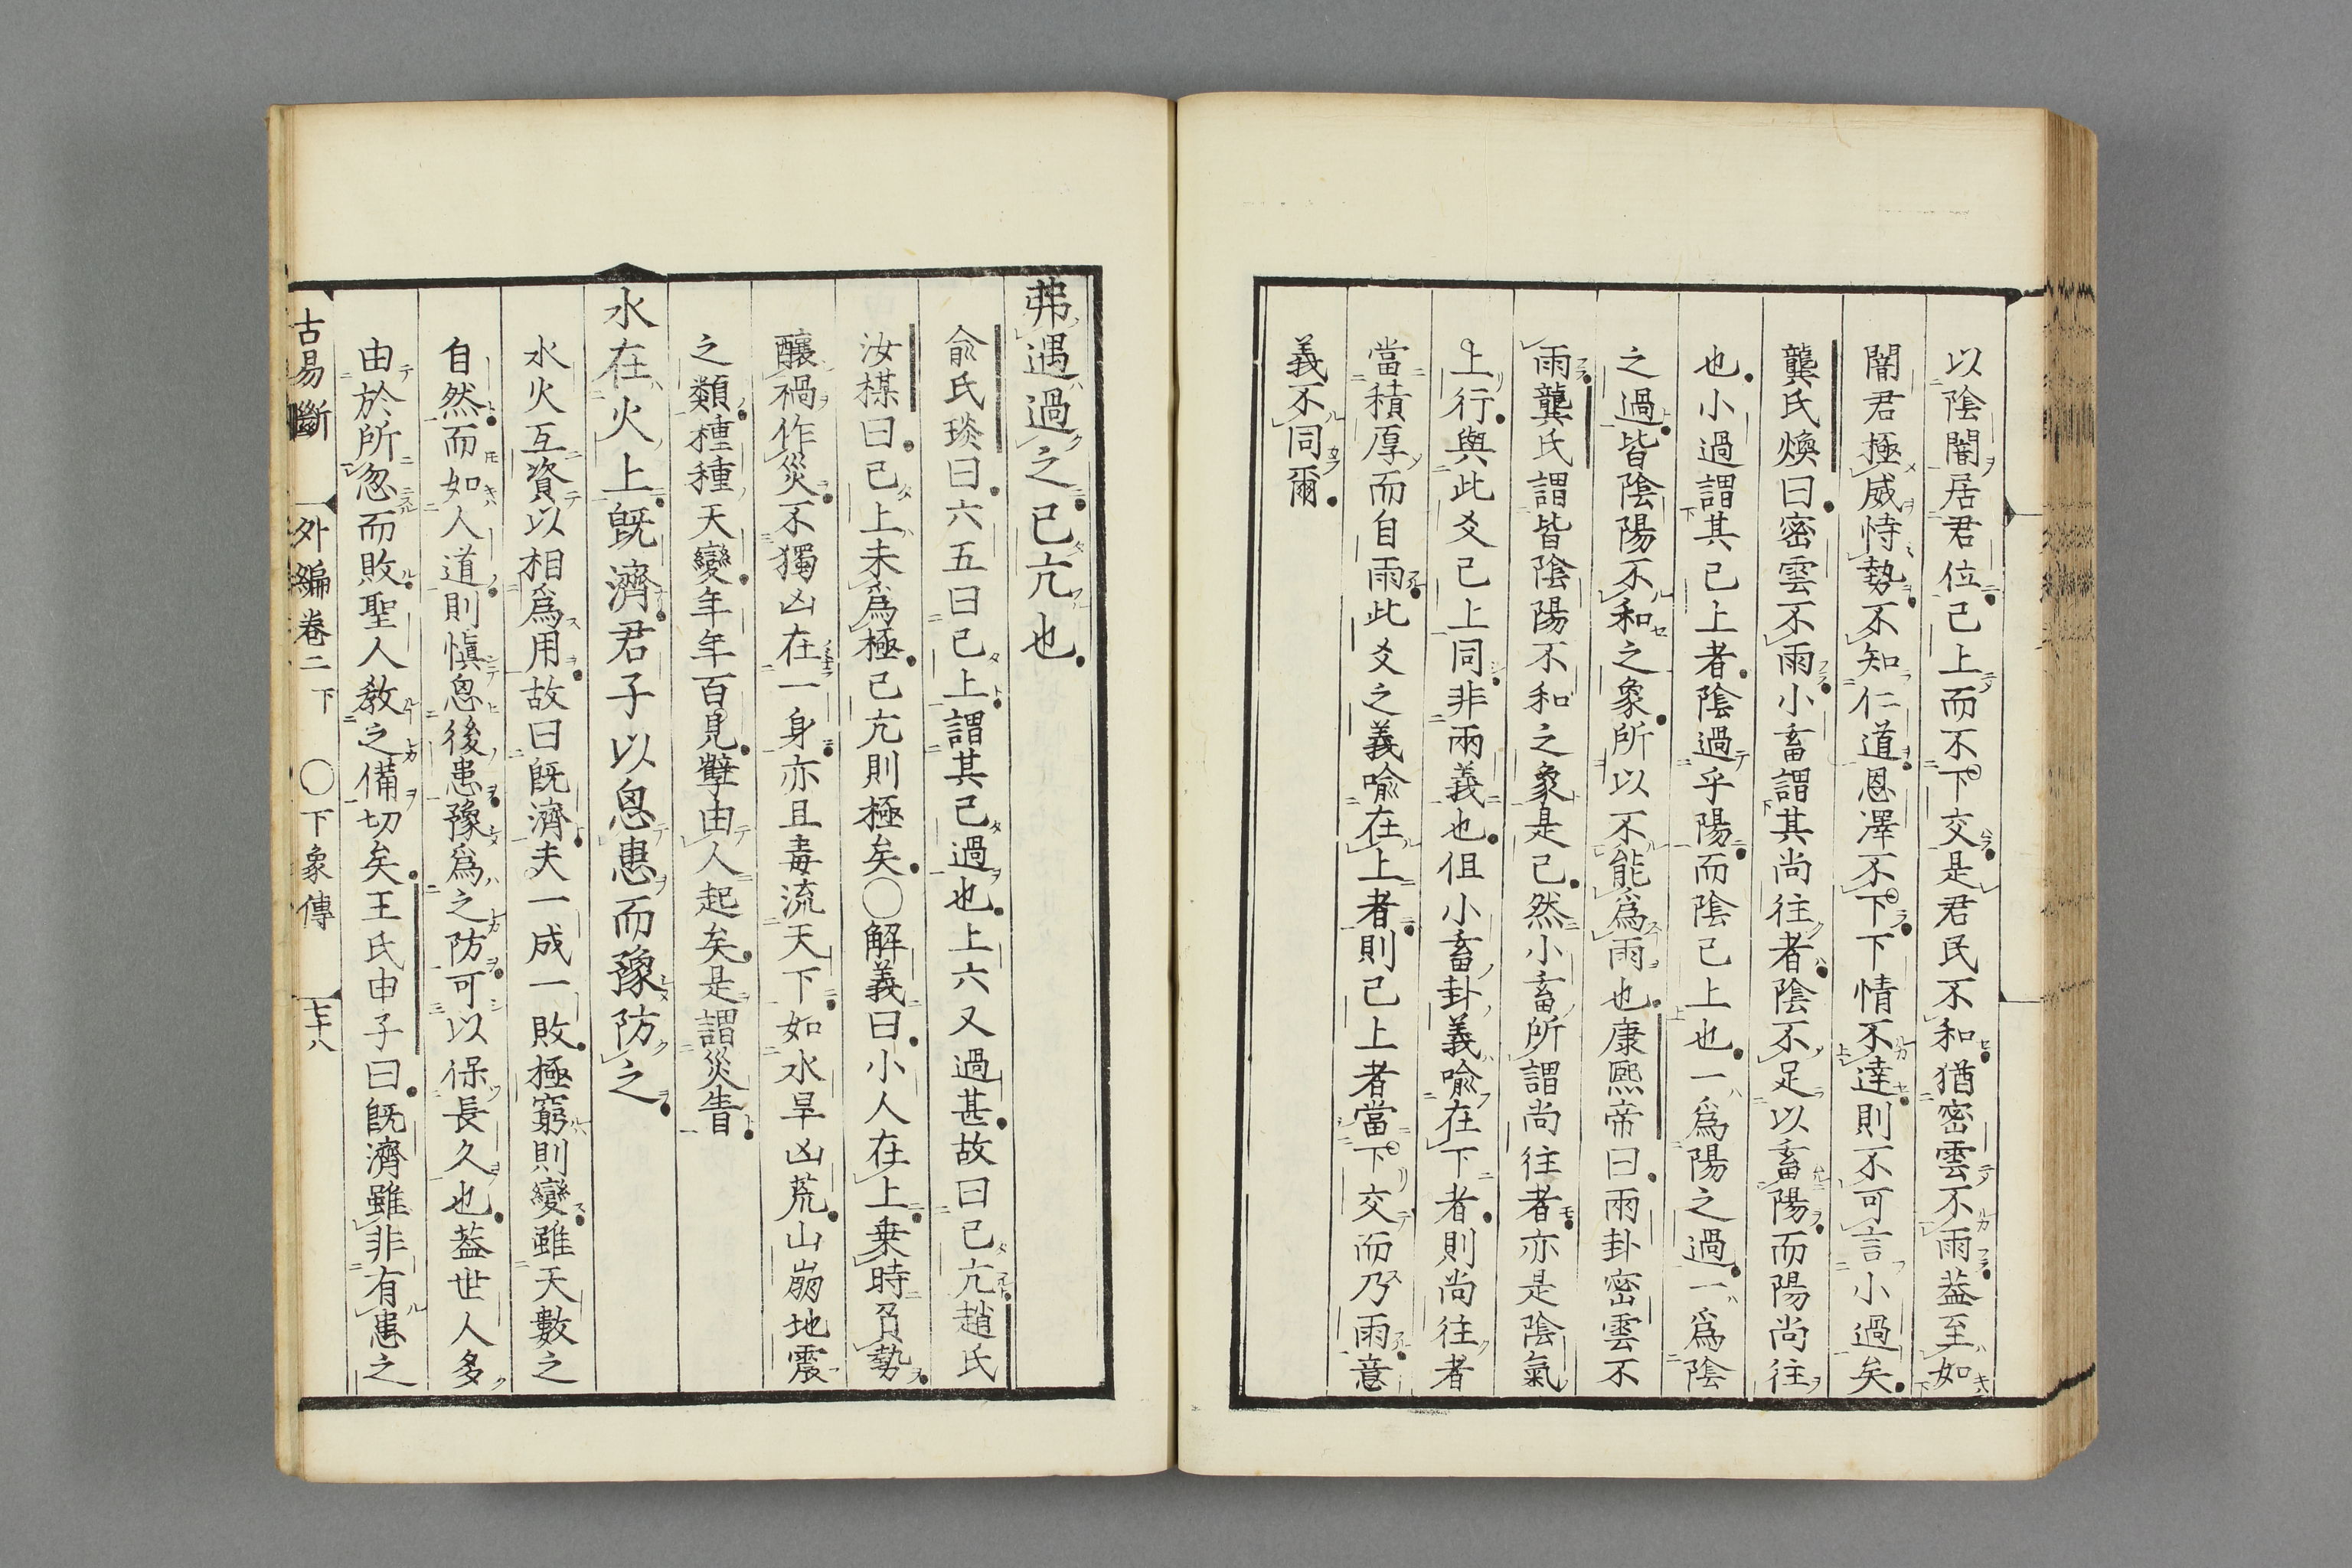 以陰闇居君位已上而不下交是君民不和猶密雲不雨葢至如
闇君極威恃勢不知仁道恩澤不下下情不達則不可言小過矣
龔氏煥曰密雲不雨小畜謂其尚往者陰不足以畜陽而陽尚往
也小過謂其已上者陰過乎陽而陰已上也一爲陽之過一爲陰
之過皆陰陽不和之象所以不能爲雨也康熙帝曰兩卦密雲不
雨龔氏謂皆陰陽不和之象是已然小畜所謂尚往者亦是陰氣
上行與此爻已上同非兩義也但小畜卦義喩在下者則尚往者
當積厚而自雨此爻之義喩在上者則已上者當下交而乃雨意
義不同爾
弗遇過之已亢也
兪氏琰曰六五曰已上謂其已過也上六又過甚故曰已亢趙氏
汝楳曰已上未爲極已亢則極矣○解義曰小人在上乗時負勢
釀禍作災不獨凶在一身亦且毒流天下如水旱凶荒山崩地震
之類種種天變年年百見孽由人起矣是謂災眚
水在火上旣濟君子以思患而豫防之
水火互資以相爲用故曰旣濟夫一成一敗極窮則變雖天數之
自然而如人道則愼思後患豫爲之防可以保長久也葢世人多
由於所忽而敗聖人敎之備切矣王氏申子曰旣濟雖非有患之
古易斷 外編卷二下 ○下象傳 七十八